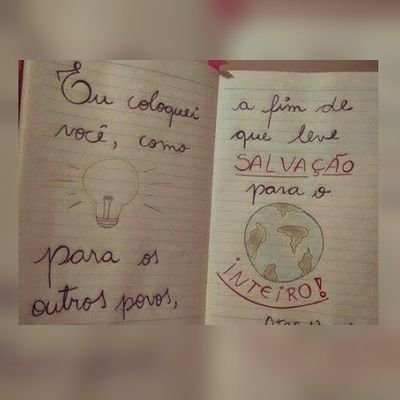 Eu coloquei
você, como
para os
outros povos,
a fim de
que leve
SALVAÇÃO
para o
INTEIRO!